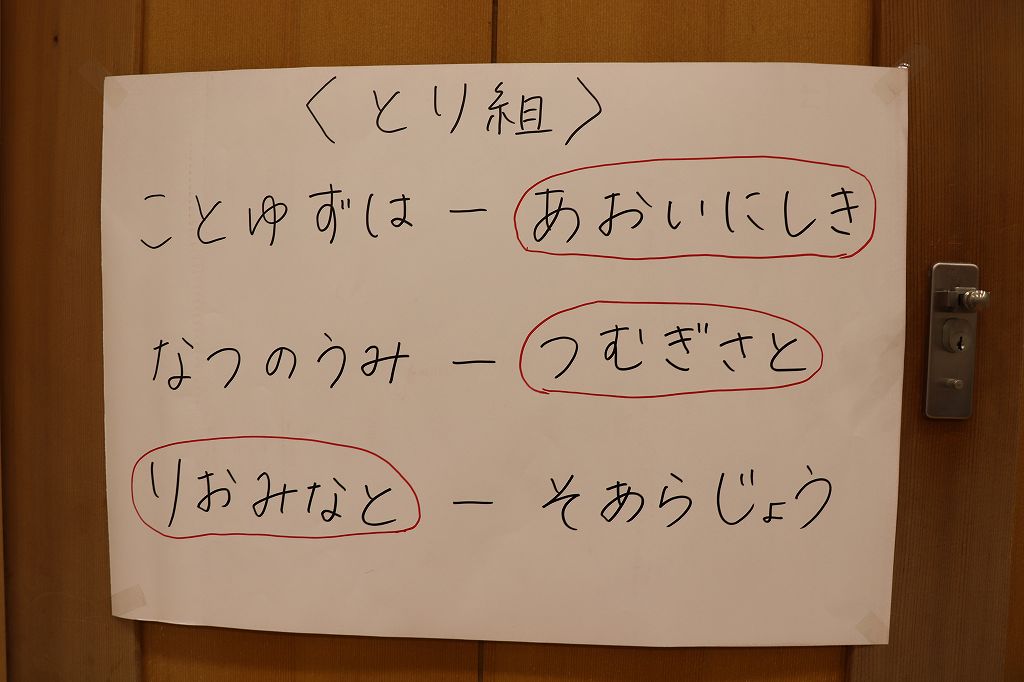 〈とり組〉
ことゆずは ー あおいにしき
なつのうみ ー つむぎさと
りおみなと ー そあらじょう